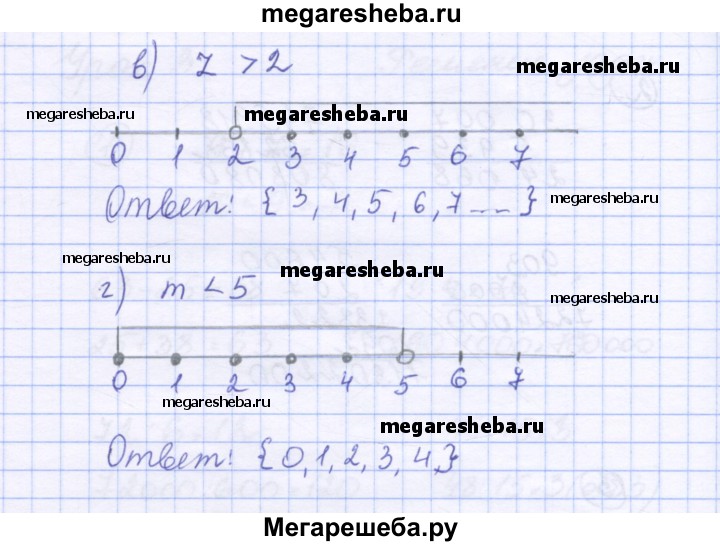 megaresheba.ru
в) z > 2
megaresheba.ru
megaresheba.ru megaresheba.ru
0 1 2 3 4 5 6 7
Ответ: {3, 4, 5, 6, 7 ...}
megaresheba.ru
megaresheba.ru
megaresheba.ru
г) m < 5
megaresheba.ru
0 1 2 3 4 5 6 7
megaresheba.ru
megaresheba.ru
Ответ: {0, 1, 2, 3, 4,}
Мегарешеба.ру